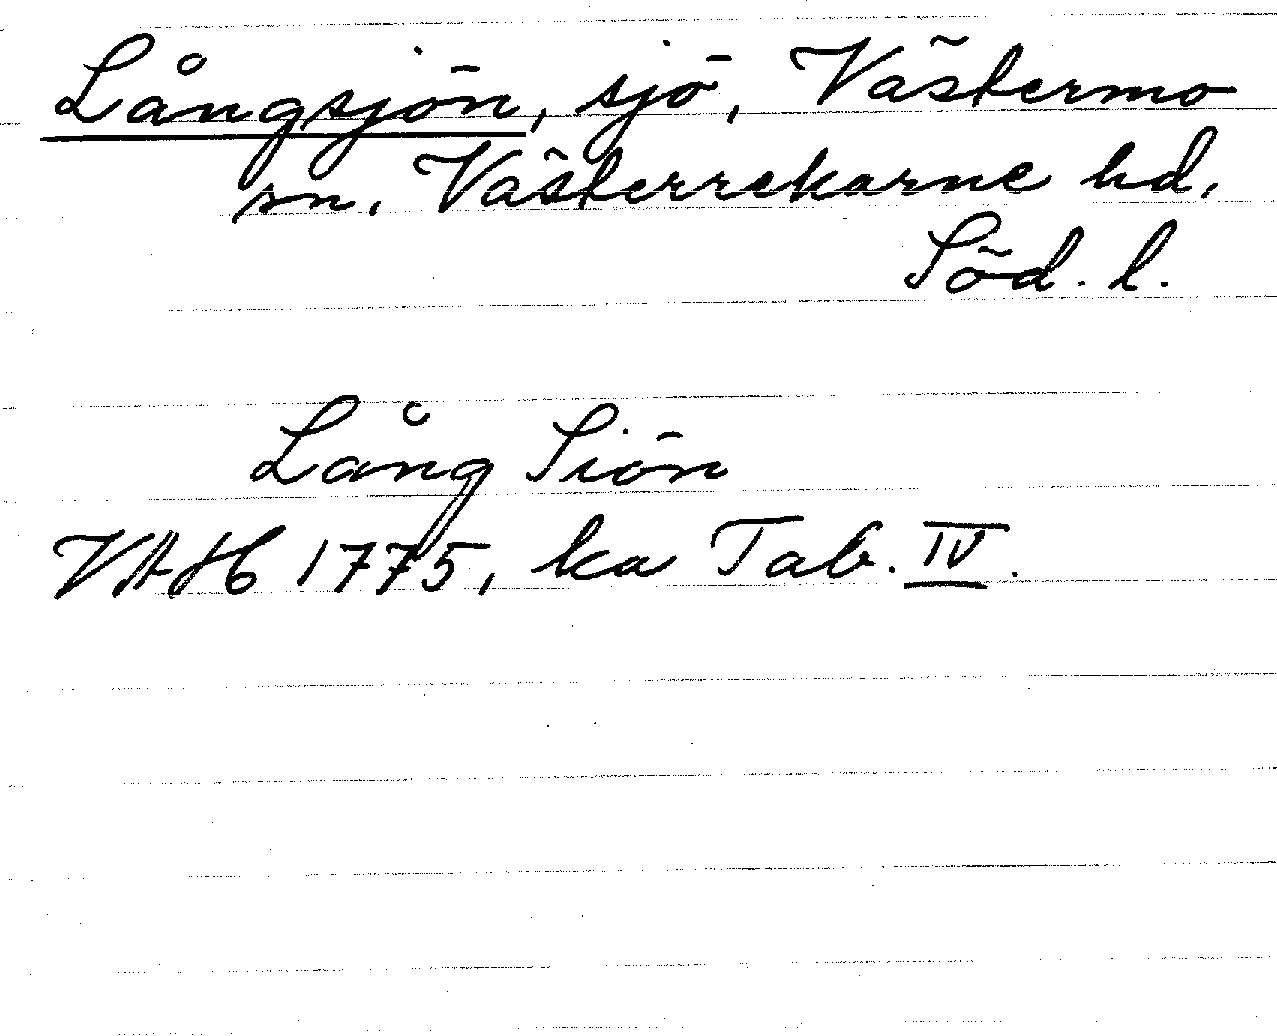 Långsjön, sjö, Västermo
sn, Västerrekarne hd,
Söd. l.
Lång Siön
VAH 1775, ka Tab. IV.